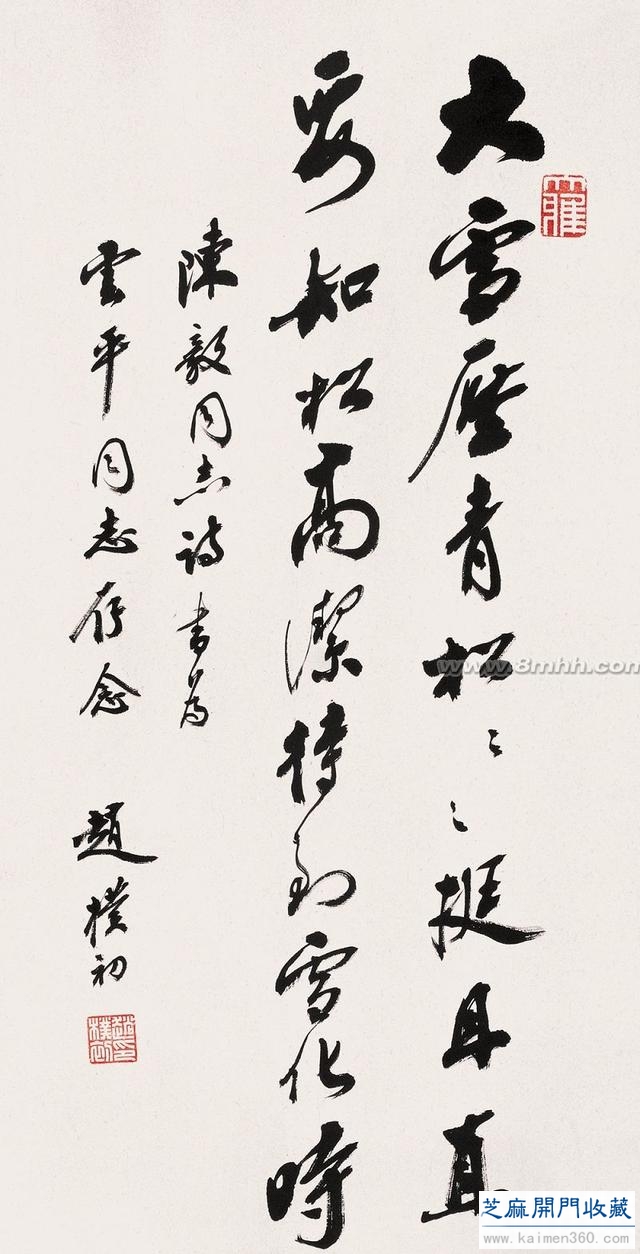 大雪壓青松々々挺且直
要知松高潔待到雪化時
陳毅同志詩書為
雲平同志存念 趙樸初
趙樸初印
www.8mhh.com
芝麻開門收藏
www.kaimen360.com